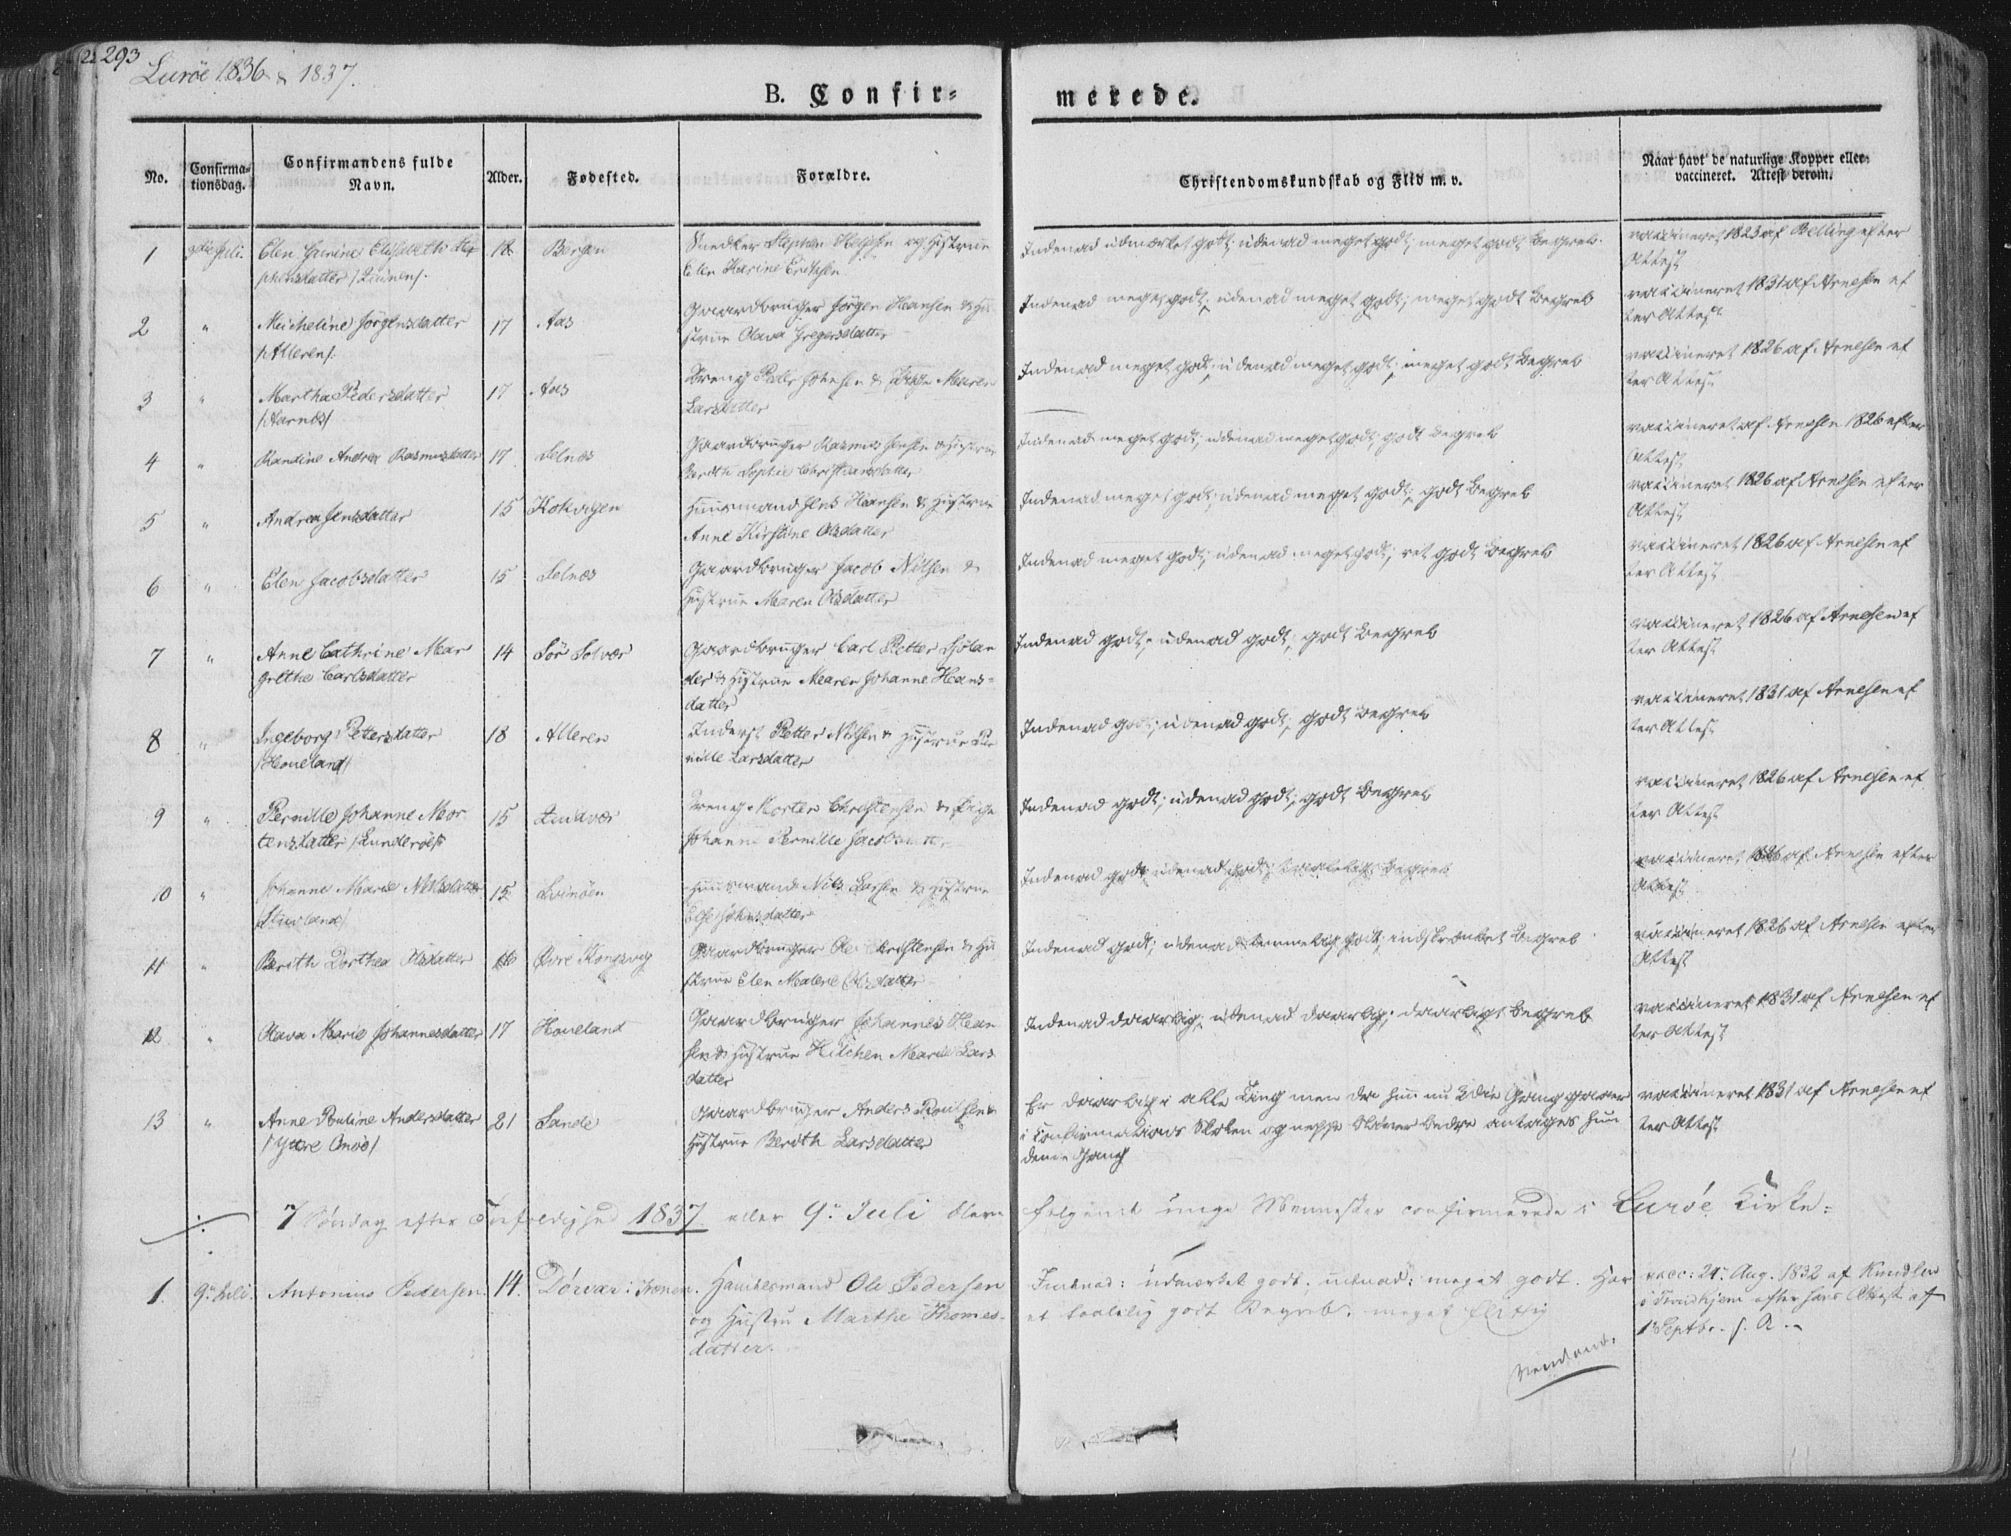 293
Lurøe 1836 & 1837.
B. Confir=
merede.
No.
Confirma-
tionsdag.
Confirmandens fulde
Navn.
Alder.
Fødested.
Forældre.
Christendomskundskab og Flid m. v.
Naar havt de naturlige Kopper eller
vaccineret. Attest derom.
1 Juli Elen Elisabeth Ste
phensdatter 18 Bergen Snedker Stephen og Hustrue
Elen Karine
Indenad udmærket godt; udenad meget godt; meget godt Begreb.
vaccineret 1823 af Belling efter
Attest
2 " Micheline Jørgensdatter
/Alleren/ 17 Aas Gaardbruger Jørgen Hansen & Hu
strue Olava Gregersdatter
Indenad meget godt; udenad meget godt; meget godt Begreb
vaccineret 1831 af Arnesen ef
ter Attest
3 " Martha Pedersdatter
/Aarnes/ 17 Aas Dreng Peder Johnsen & Pige Maren
Larsdatter
Indenad meget godt; udenad meget godt; meget godt Begreb
vaccineret 1826 af Arnesen ef
ter Attest
4 " Randine Andrea Rasmusdatter 17 Selnæs Gaardbruger Rasmus Jensen & Hustrue
Berith Sophie Christiansdatter
Indenad meget godt; udenad meget godt; godt Begreb
vaccineret af Arnesen 1826 efter
Attest
5 " Andrea Jensdatter 15 Kokvigen Huusmand Jens Hansen & Hustrue
Anne Kirstine Olsdatter
Indenad meget godt; udenad meget godt; godt Begreb
vaccineret 1826 af Arnesen efter
Attest
6 " Elen Jacobsdatter 15 Selnæs Gaardbruger Jacob Nilsen &
Hustrue Maren Olsdatter
Indenad meget godt; udenad meget godt; ret godt Begreb
vaccineret 1826 af Arnesen ef
ter Attest
7 " Anne Cathrine Mar
grethe Carlsdatter 14 Sør Solvær Gaardbruger Carl Petter Sjølan
der & Hustrue Maren Johanne Hans-
datter
Indenad godt; udenad godt; godt Begreb
vaccineret 1826 af Arnesen ef
ter Attest
8 " Ingeborg Petersdatter
/Houeland/ 18 Alleren Inderst Petter Nilsen & Hustrue Per
nille Larsdatter
Indenad godt; udenad godt; godt Begreb
vaccineret 1831 af Arnesen ef
ter Attest
9 " Pernille Johanne Mor
tensdatter 15 Dreng Morten Christensen & Pige
Johanne Pernille Jacobsdatter
Indenad godt; udenad godt; godt Begreb
vaccineret 1826 af Arnesen ef
ter Attest
10 " Johanne Marie Nilsdatter
/Stuvland/ 15 Huusmand Nils Larsen & Hustrue
Else Johnsdatter
Indenad godt; udenad godt; taalelig Begreb
vaccineret 1826 af Arnesen efter
Attest
11 " Berith Dorthea Olsdatter 16 Øvre Kongsvig Gaardbruger Ole Christensen & Hu
strue Elen Malene Olsdatter
Indenad godt; udenad temmelig godt; indskrænket Begreb
vaccineret 1826 af Arnesen efter
Attest
12 " Olava Marie Johannesdatter 17 Houeland Gaardbruger Johannes Han
sen & Hustrue Marie Lars
datter
Indenad daarlig; udenad daarlig; daarligt Begreb
vaccineret 1831 af Arnesen ef
ter Attest
13 " Anne Pauline Andersdatter
/Yttre Onøe/ 21 Sande Gaardbruger Anders Poulsen &
Hustrue Berith Larsdatter
Er daarlig i alle Ting men da hun nu 3die Gang gaaer
i Confirmations Skolen og neppe bliver bedre antages hun
denne Gang
vaccineret 1831 af Arnesen ef
ter Attest
7 Søndag efter Trefoldighed 1837 eller 9. Juli bleve følgende unge Mennesker confirmerede i Lurøe Kirke:
1. 9. Juli. Antonius Pedersen. 14. Dørvær i Trænen. Handelsmand Ole Pedersen
og Hustru Marthe Thomes-
datter.
Indenad: udmærket godt. udenad: meget godt. Har
et taalelig godt Begreb. meget flittig
vacc: 24. Aug. 1832 af Knudsen
i Trondhjem efter hans Attest af
1 Septbr. s. A.